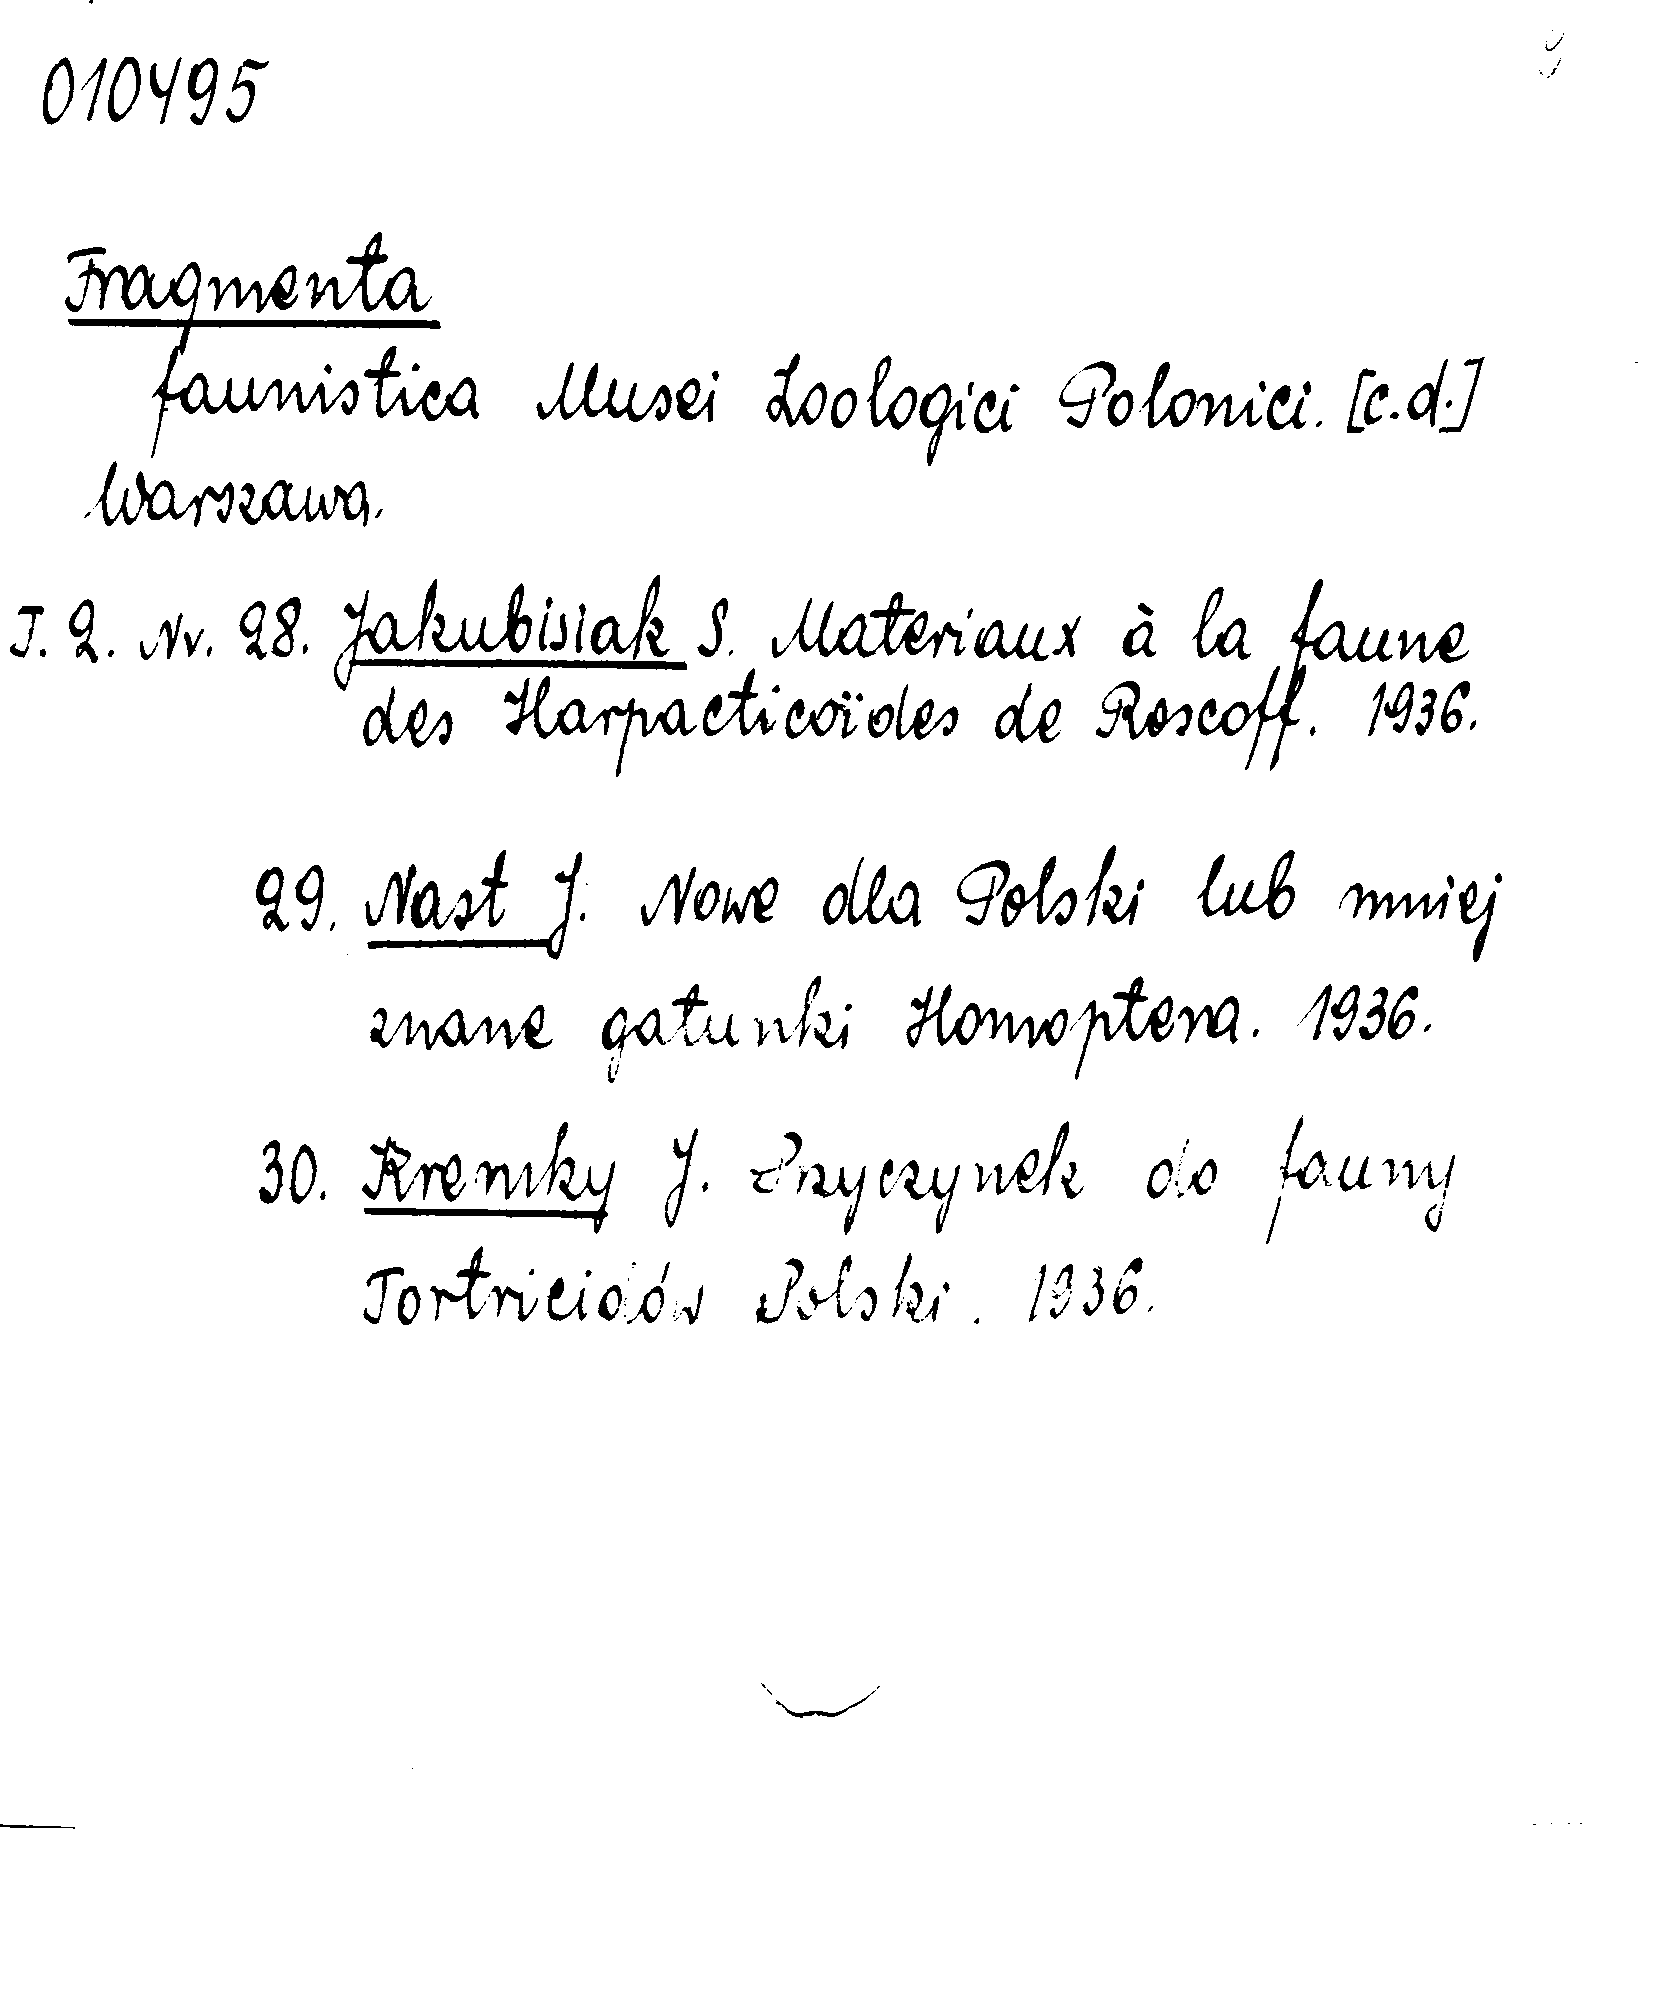 010495
9
Fragmenta
faunistica Musei Zoologici Polonici. [c.d.]
Warszawa.
T. 2. Nr. 28. Jakubisiak S. Materiaux à la faune
des Harpacticoïdes de Roscoff. 1936.
29. Nast J. Nowe dla Polski lub mniej
znane gatunki Homoptera. 1936.
30. Kremky J. Przyczynek do fauny
Tortricidów Polski. 1936.